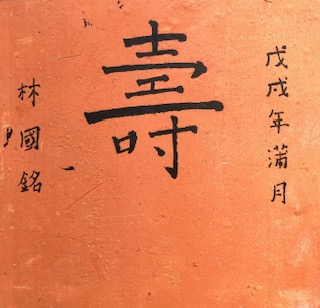 戊戌年蒲月
壽
林國銘